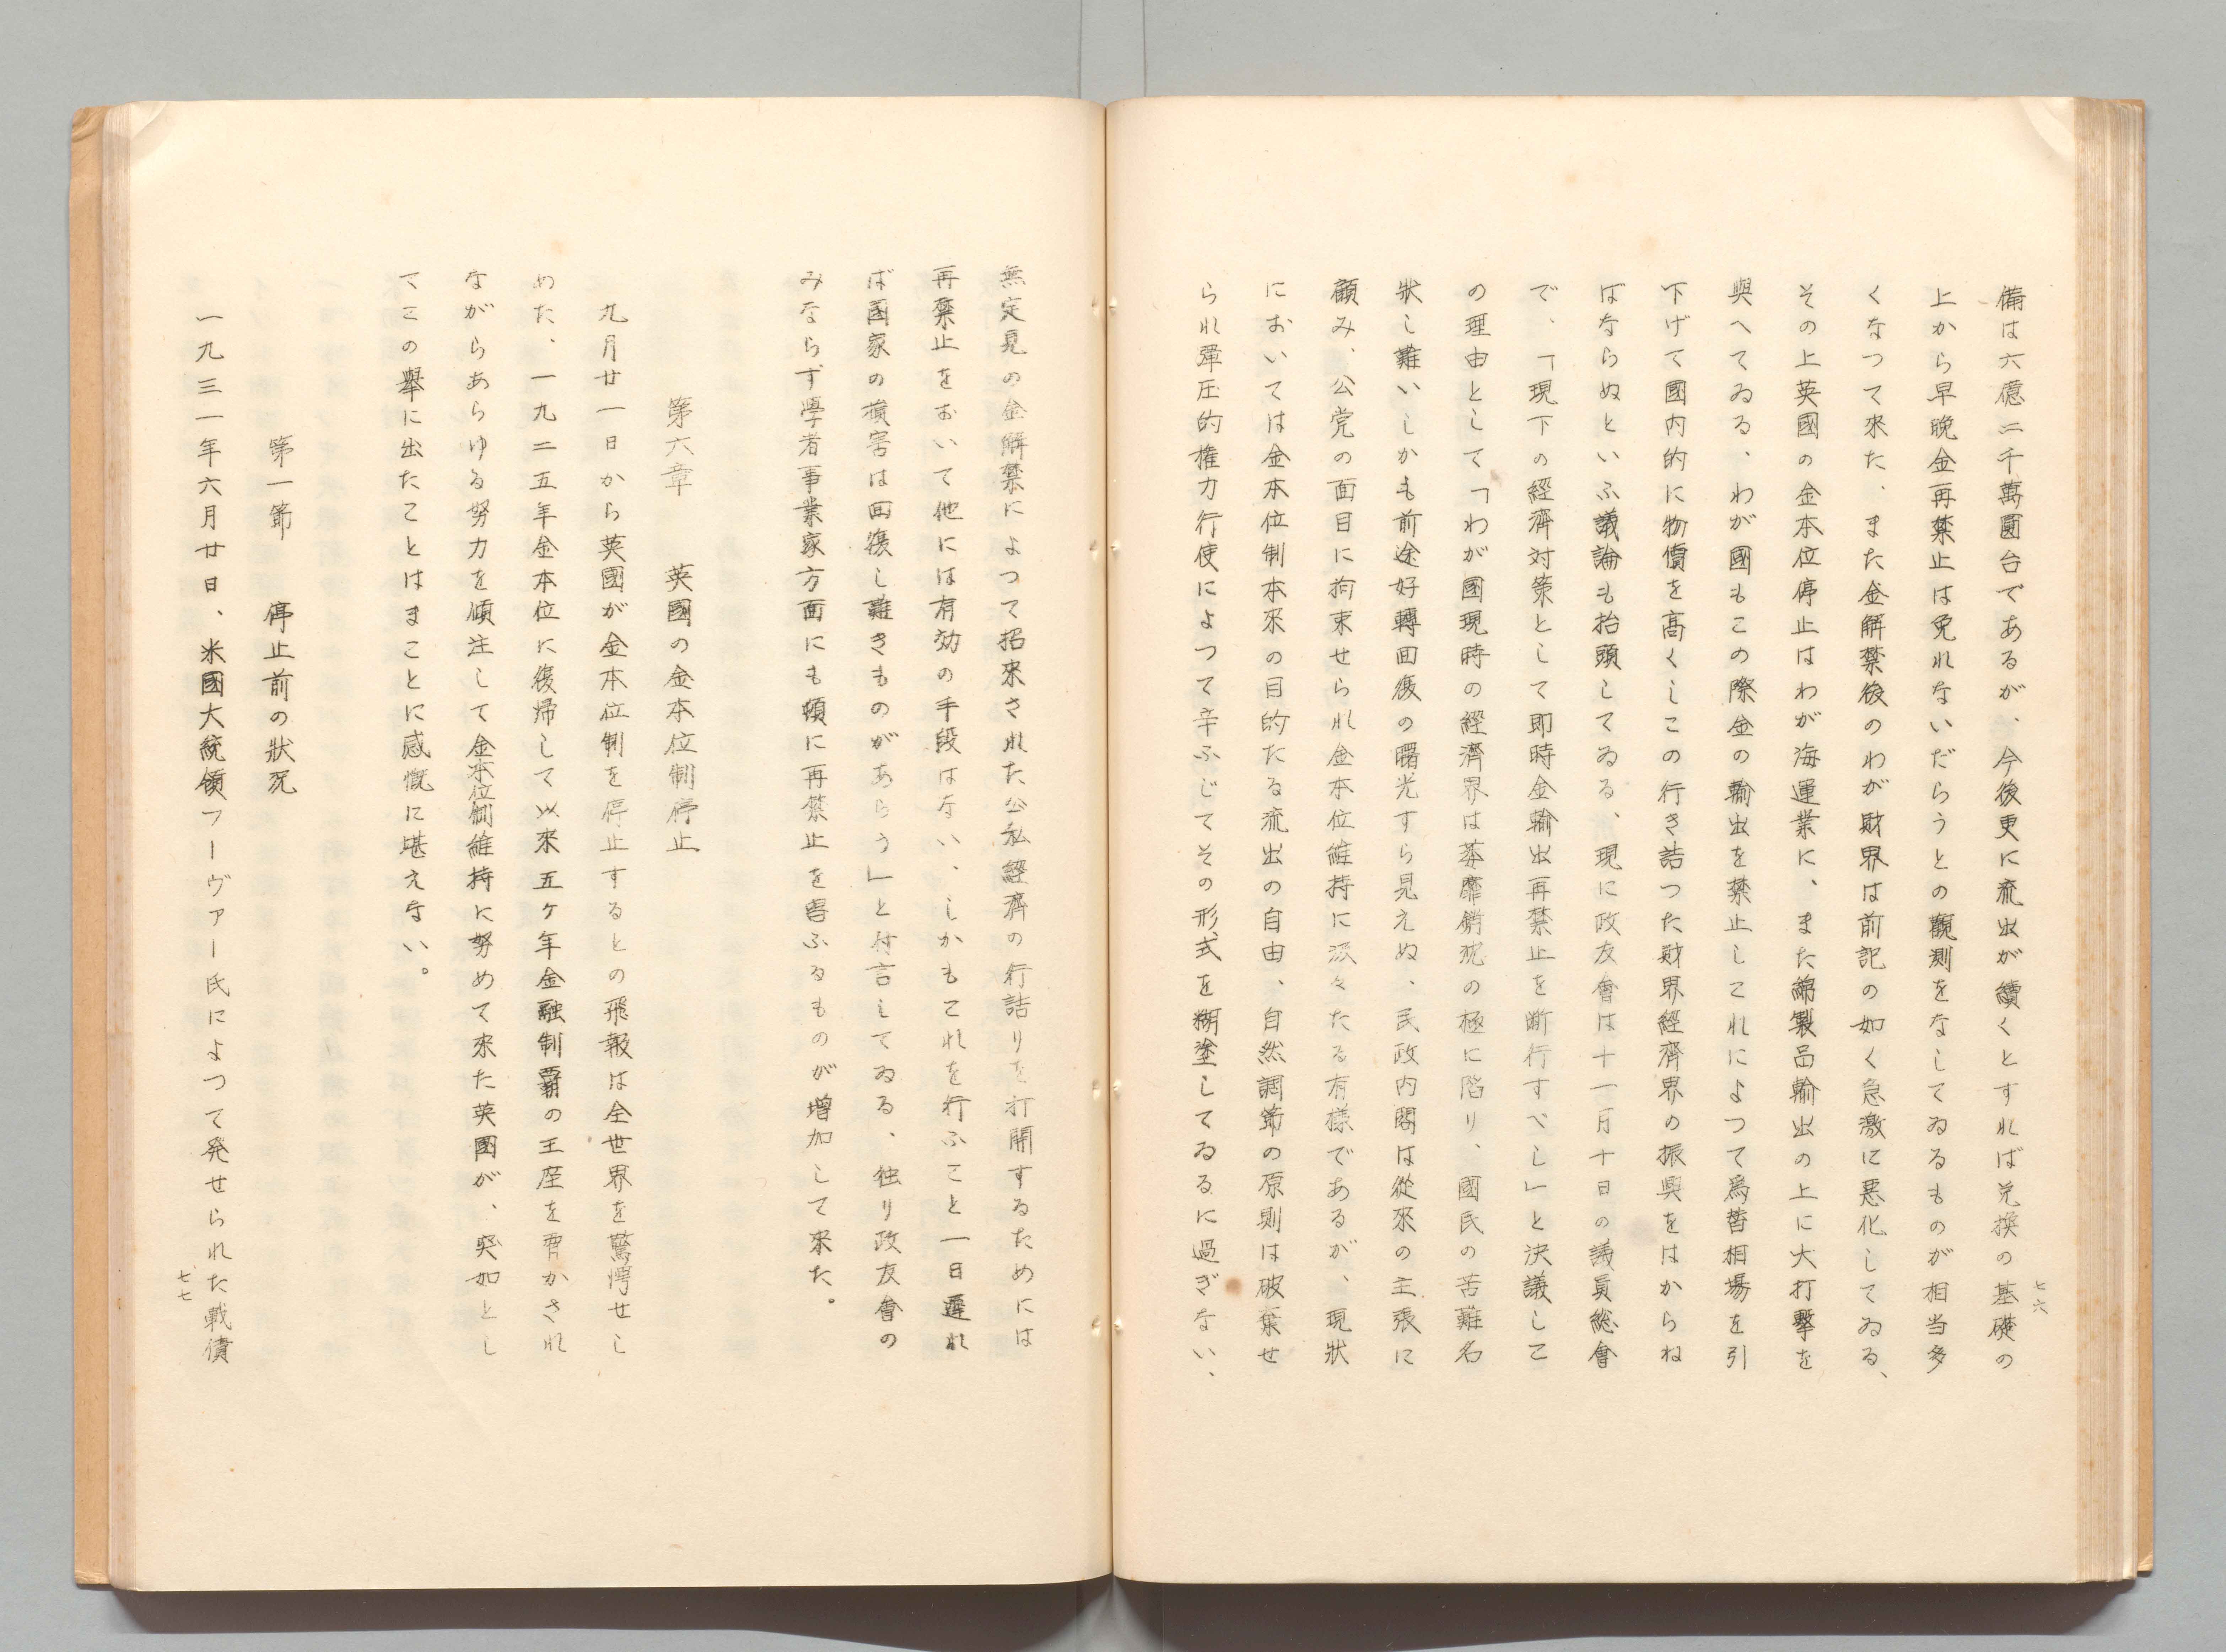 七六
備は六億二千萬圓台であるが、今後更に流出が續くとすれば兌換の基礎の
上から早晩金再禁止は免れないだらうとの觀測をなしてゐるものが相当多
くなつて來た、また金解禁後のわが財界は前記の如く急激に悪化してゐる、
その上英國の金本位停止はわが海運業に、また綿製品輸出の上に大打撃を
與へてゐる、わが國もこの際金の輸出を禁止してれによつて爲替相場を引
下げて國内的に物價を高くしこの行き詰つた財界經濟界の振興をはからね
ばならぬといふ議論も抬頭してゐる、現に政友會は十一月十日の議員総會
で、「現下の經濟対策として即時金輸出再禁止を断行すべし」と決議してこ
の理由として「わが國現時の經濟界は萎靡銷沈の極に陥り、國民の苦難名
狀し難いしかも前途好轉回復の曙光すら見えぬ、民政内閣は從來の主張に
顧み、公党の面目に拘束せられ金本位維持に汲々たる有様であるが、現狀
においては金本位制本來の目的たる流出の自由、自然調節の原則は破棄せ
られ彈圧的権力行使によつて辛ふじてその形式を糊塗してゐるに過ぎない、
無定見の金解禁によつて招來された公私經濟の行詰りを打開するためには
再禁止をおいて他には有効の手段はない、しかもこれを行ふこと一日遲れ
ば國家の損害は回復し難きものがあらう」と付言してゐる、独り政友會の
みならず學者事業家方面にも頓に再禁止を唱ふるものが増加して來た。
第六章　英國の金本位制停止
九月廿一日から英國が金本位制を停止するとの飛報は全世界を驚愕せし
めた、一九二五年金本位に復帰して以來五ヶ年金融制覇の王座を脅かされ
ながらあらゆる努力を傾注して金本位制維持に努めて來た英國が、突如とし
てこの舉に出たことはまことに感慨に堪えない。
第一節　停止前の狀况
一九三一年六月廿日、米國大統領フーヴァー氏によつて発せられた戰債
七七